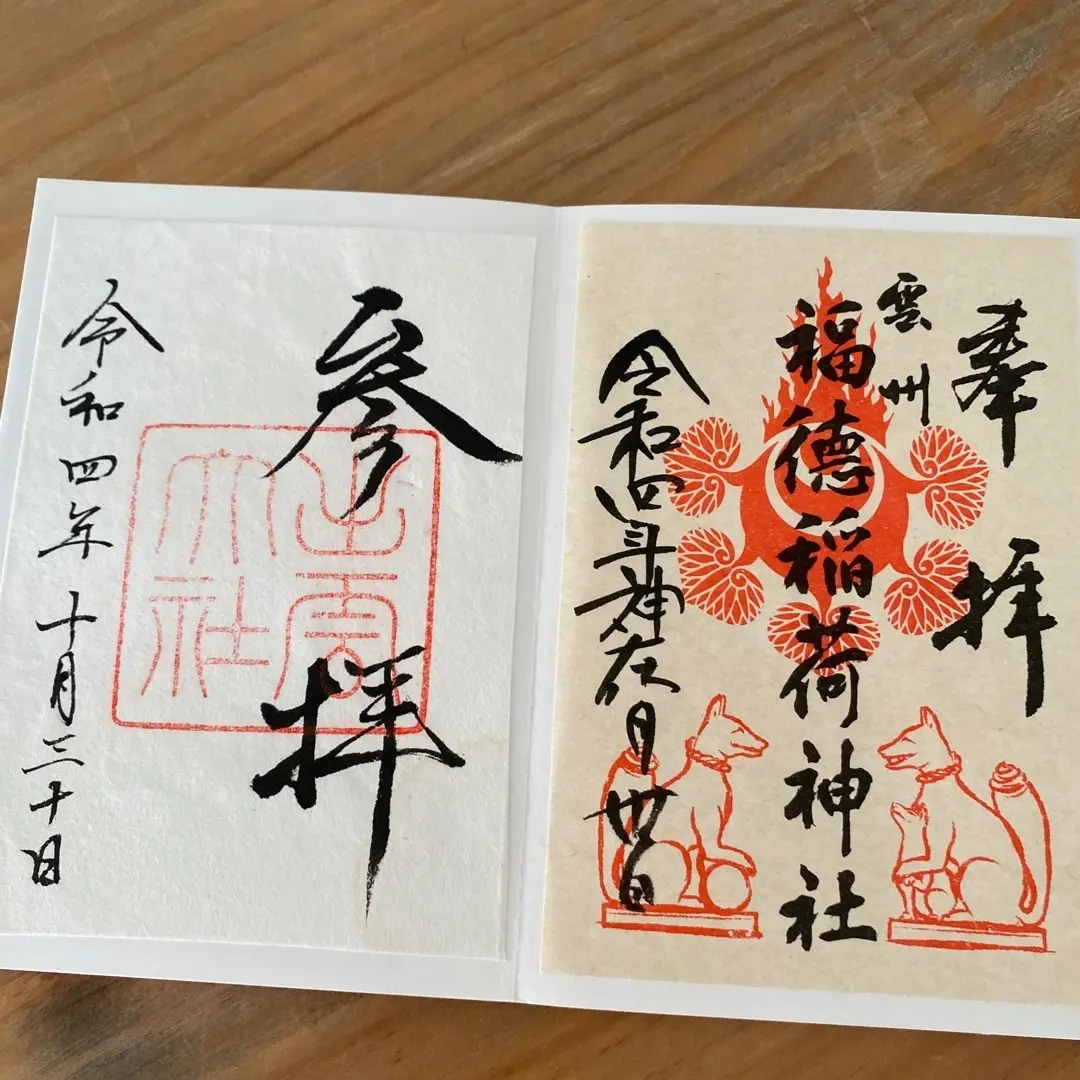 奉拝
雲州
福徳稲荷神社
令和四年神在月丗日
参拝
出雲大社
令和四年十月三十日